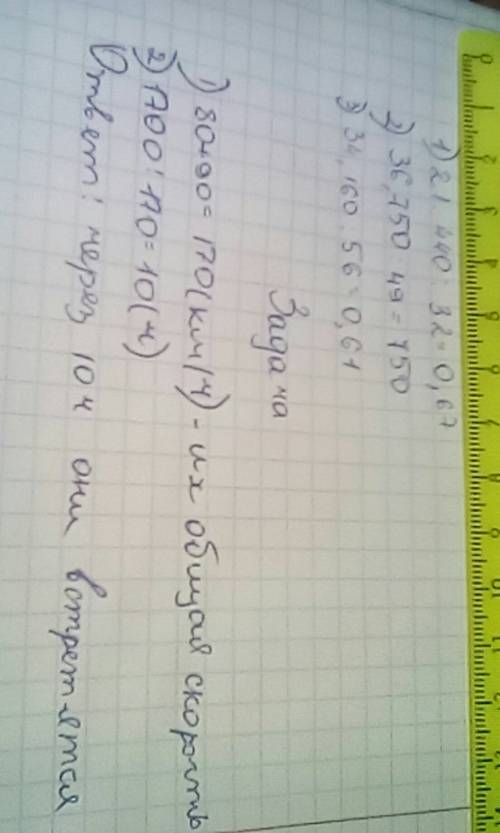 1) 21.440 : 32 = 0,67
2) 36,750 : 49 = 750
3) 34,160 : 56 = 0,61
Задача
1) 80+90 = 170(км/ч) - их общая скорость
2) 1700 : 170 = 10(ч)
Ответ: через 10 ч они встретятся